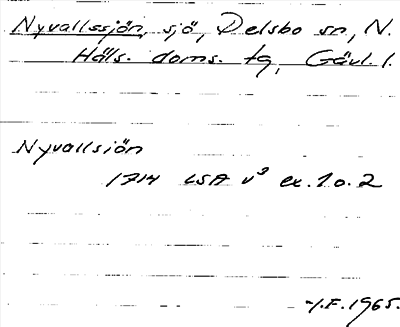 Nyvallssjön, sjö, Delsbo sn, N.
Häls. doms. tg, Gävl. l.
Nyvallsiön
1714 LSA v³ ex. 1 o. 2
I.F. 1965.